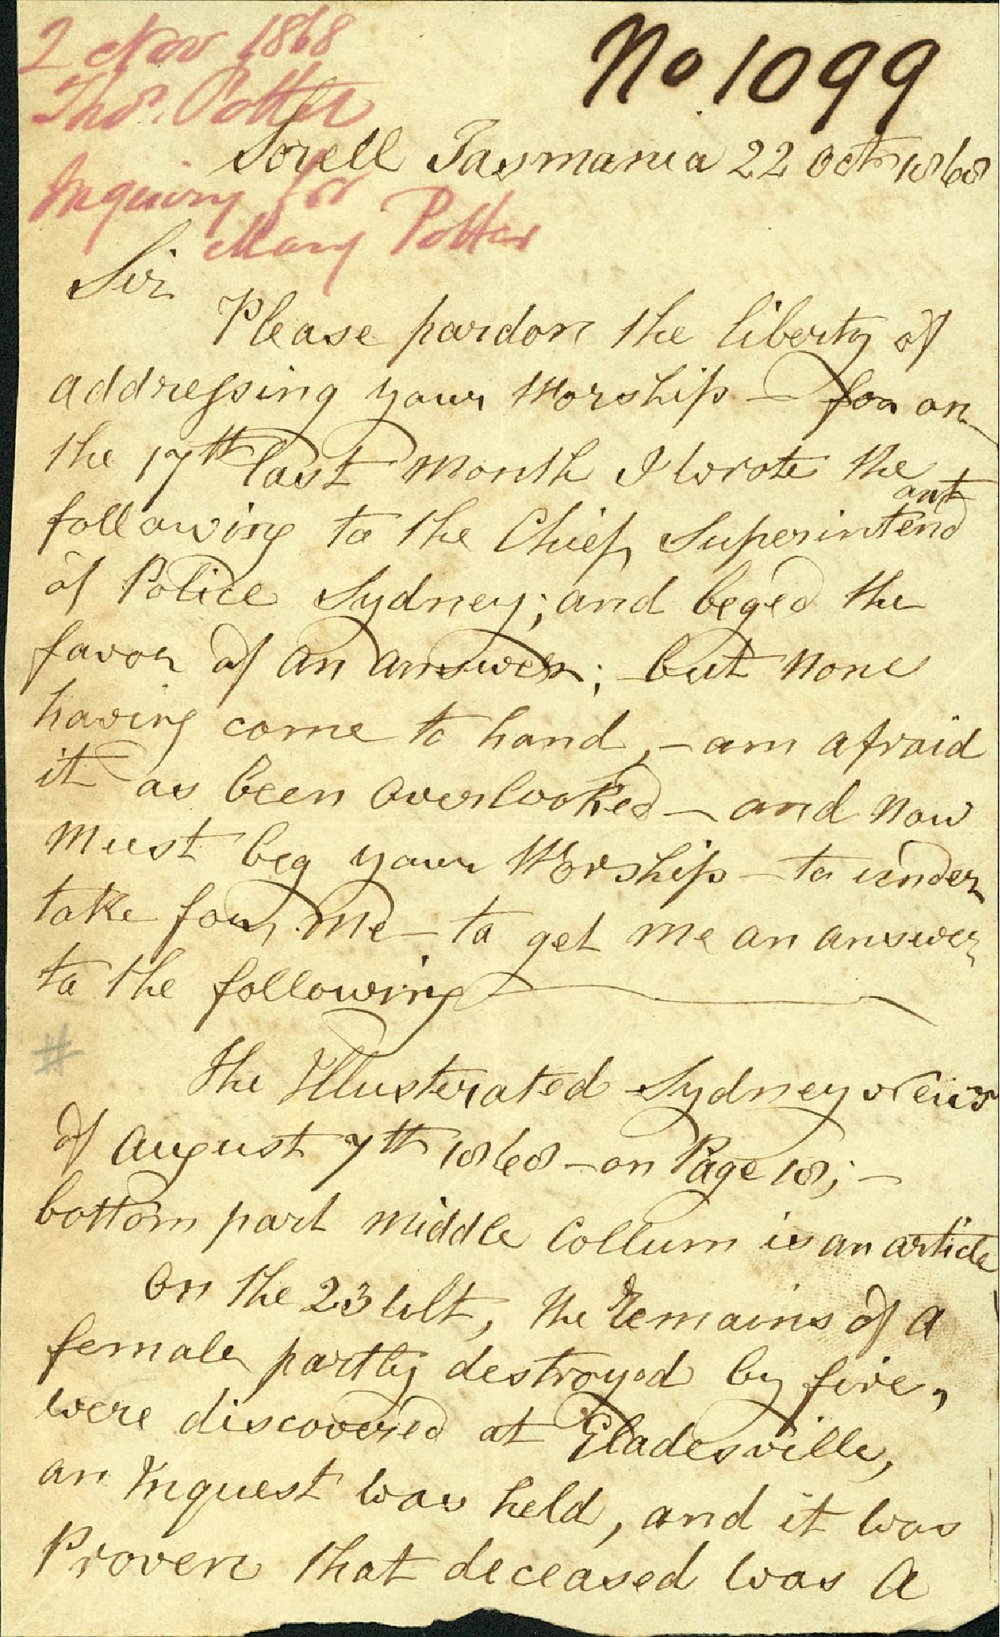 2 Nov 1868
Thos. Potter
Inquiry for
Mary Potter
No 1099
Sorell Tasmania 22 Octr 1868
Sir
Please pardon the liberty of
addressing your Worship – for on
the 17th last month I wrote the
following to the Chief Superintend
ant
of Police Sydney; and beged the
favor of an answer; but none
having come to hand, – am afraid
it as been overlooked – and now
must beg your Worship – to under
take for, me – to get me an answer
to the following
#
The Illusterated Sydney News
of August 7th 1868 – on Page 18; –
bottom part middle Collum is an article
On the 23 Ult, the remains of a
female partly destroyed by fire,
were discovered at Gladesville,
an Inquest was held, and it was
Proven that deceased was a